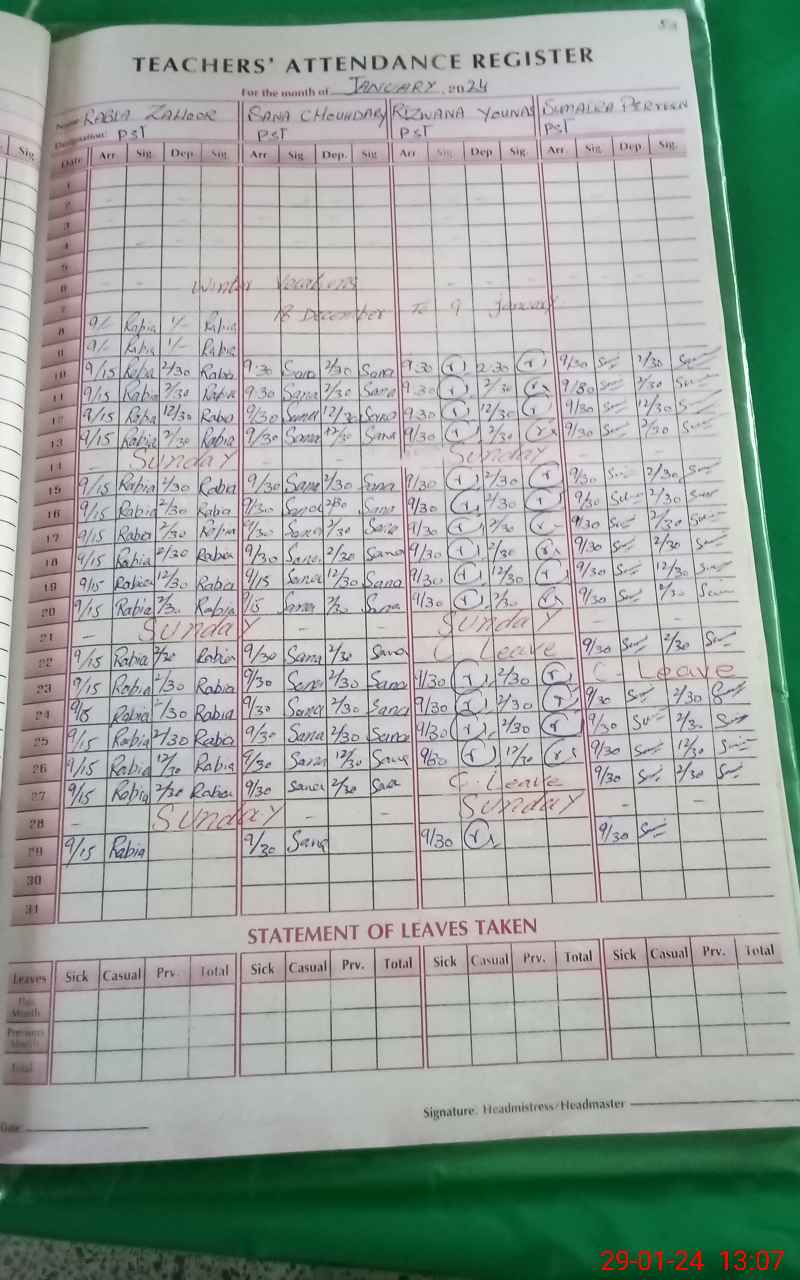 53
TEACHERS' ATTENDANCE REGISTER
For the month of JANUARY, 2024
Name RABIA ZAHOOR SANA CHOUHDARY RIZWANA YOUNAS SUMAIRA PERVEEN
Designation: PST PST PST PST
Sig Date Arr Sig. Dep. Sig Arr Sig Dep. Sig Arr Sig Dep Sig. Arr. Sig Dep. Sig.
1
2
3
4
5
6 Winter Vocations
7 18 December To 9 january
8 9/- Rabia 1/- Rabia
9 9/- Rabia 1/- Rabia
10 9/15 Rabia 2/30 Rabia 9:30 Sana 2/30 Sana 9:30 r 2:30 r 9/30 2/30
11 9/15 Rabia 2/30 Rabia 9:30 Sana 2/30 Sana 9:30 r 2/30 r 9/30 2/30
12 9/15 Rabia 12/30 Rabia 9/30 Sana 12/30 Sana 9:30 r 12/30 r 9/30 12/30
13 9/15 Rabia 2/30 Rabia 9/30 Sana Sana 9/30 r 2/30 r 9/30 2/30
14 - Sunday - - Sunday - -
15 9/15 Rabia 2/30 Rabia 9/30 Sana 2/30 Sana 9/30 r 2/30 r 9/30 2/30
16 9/15 Rabia 2/30 Rabia 9/30 Sana 2:30 Sana 9/30 r 2/30 r 9/30 2/30
17 9/15 Rabia 2/30 Rabia 9/30 Sana 2/30 Sana 9/30 r 2/30 r 9/30 2/30
18 9/15 Rabia 2/30 Rabia 9/30 Sana 2/30 Sana 9/30 r 2/30 r 9/30 2/30
19 9/15 Rabia 12/30 Rabia 9/15 Sana 12/30 Sana 9/30 r 12/30 r 9/30 12/30
20 9/15 Rabia 2/30 Rabia 9/15 Sana 2/30 Sana 9/30 r 2/30 r 9/30 2/30
21 - Sunday - - Sunday - -
22 9/15 Rabia 2/30 Rabia 9/30 Sana 2/30 Sana C Leave 9/30 2/30
23 9/15 Rabia 2/30 Rabia 9/30 Sana 2/30 Sana 9/30 r 2/30 r C-Leave
24 9/15 Rabia 2/30 Rabia 9/30 Sana 2/30 Sana 9/30 r 2/30 r 9/30 2/30
25 9/15 Rabia 2/30 Rabia 9/30 Sana 2/30 Sana 9/30 r 2/30 r 9/30 2/30
26 9/15 Rabia 12/30 Rabia 9/30 Sana 12/30 Sana 9/30 r 12/30 r 9/30 12/30
27 9/15 Rabia 2/30 Rabia 9/30 Sana 2/30 Sana C-Leave 9/30 2/30
28 - Sunday - - Sunday - -
29 9/15 Rabia 9/30 Sana 9/30 r 9/30
30
31
STATEMENT OF LEAVES TAKEN
Leaves Sick Casual Prv. Total Sick Casual Prv. Total Sick Casual Prv. Total Sick Casual Prv. Total
This Month
Previous Month
Total
Signature. Headmistress/Headmaster
Date
29-01-24 13:07